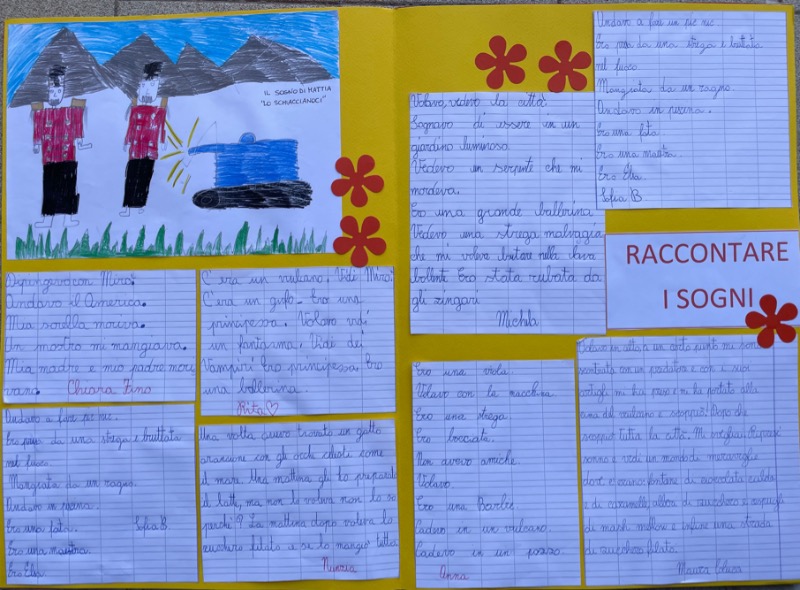 IL SOGNO DI MATTIA
"LO SCHIACCIANOCI"
Dipingevo con Mirò.
Andavo il America.
Mia sorella moriva.
Un mostro mi mangiava.
Mia madre e mio padre mori
vano. Chiara Fano
C'era un vulcano. Vidi Mirò.
C'era un gufo. Ero una
principessa. Volavo vidi
un fantasma. Vidi dei
Vampiri Ero principessa, Ero
una ballerina.
Rita
Andavo a fare pic nic.
Ero presa da una strega e buttata
nel fuoco.
Mangiata da un ragno.
Andavo in piscina.
Ero una fata. Sofia B.
Ero una maestra.
Ero Elsa.
Una volta avevo trovato un gatto
arancione con gli occhi celesti come
il mare. Una mattina gli ho preparato
il latte, ma non lo voleva non lo so
perché? La mattina dopo voleva lo
zucchero filato e se lo mangiò tutto
Volavo, vedevo la città
Sognavo di essere in un
giardino luminoso.
Vedevo un serpente che mi
mordeva.
Ero una grande ballerina
Vedevo una strega malvagia
che mi voleva buttare nella lava
bollente Ero stata rubata da
gli zingari
Andavo a fare un pic nic
Ero presa da una strega e buttata
nel fuoco
Mangiata da un ragno.
Andavo in piscina.
Ero una fata.
Ero una maestra.
Ero Elsa.
Sofia B
RACCONTARE
I SOGNI
Ero una viola.
Volavo con la macchina
Ero una strega.
Ero bocciata.
Non avevo amiche.
Volavo.
Ero una Barbie.
Cadevo in un vulcano.
Cadevo in un pozzo.
Anna
Volavo in alto a un certo punto mi sono
scontrata con un predatore e con i suoi
artigli mi ha preso e mi ha portato alla
cima del vulcano e scoppiò! Dopo che
scoppiò tutta la città. Mi svegliai. Ripresi
sonno e vidi un mondo di meraviglie
dove c'erano fontane di cioccolata calda
e di caramelle, alberi di zucchero e cespugli
di marsh mellow e infine una strada
di zucchero filato.